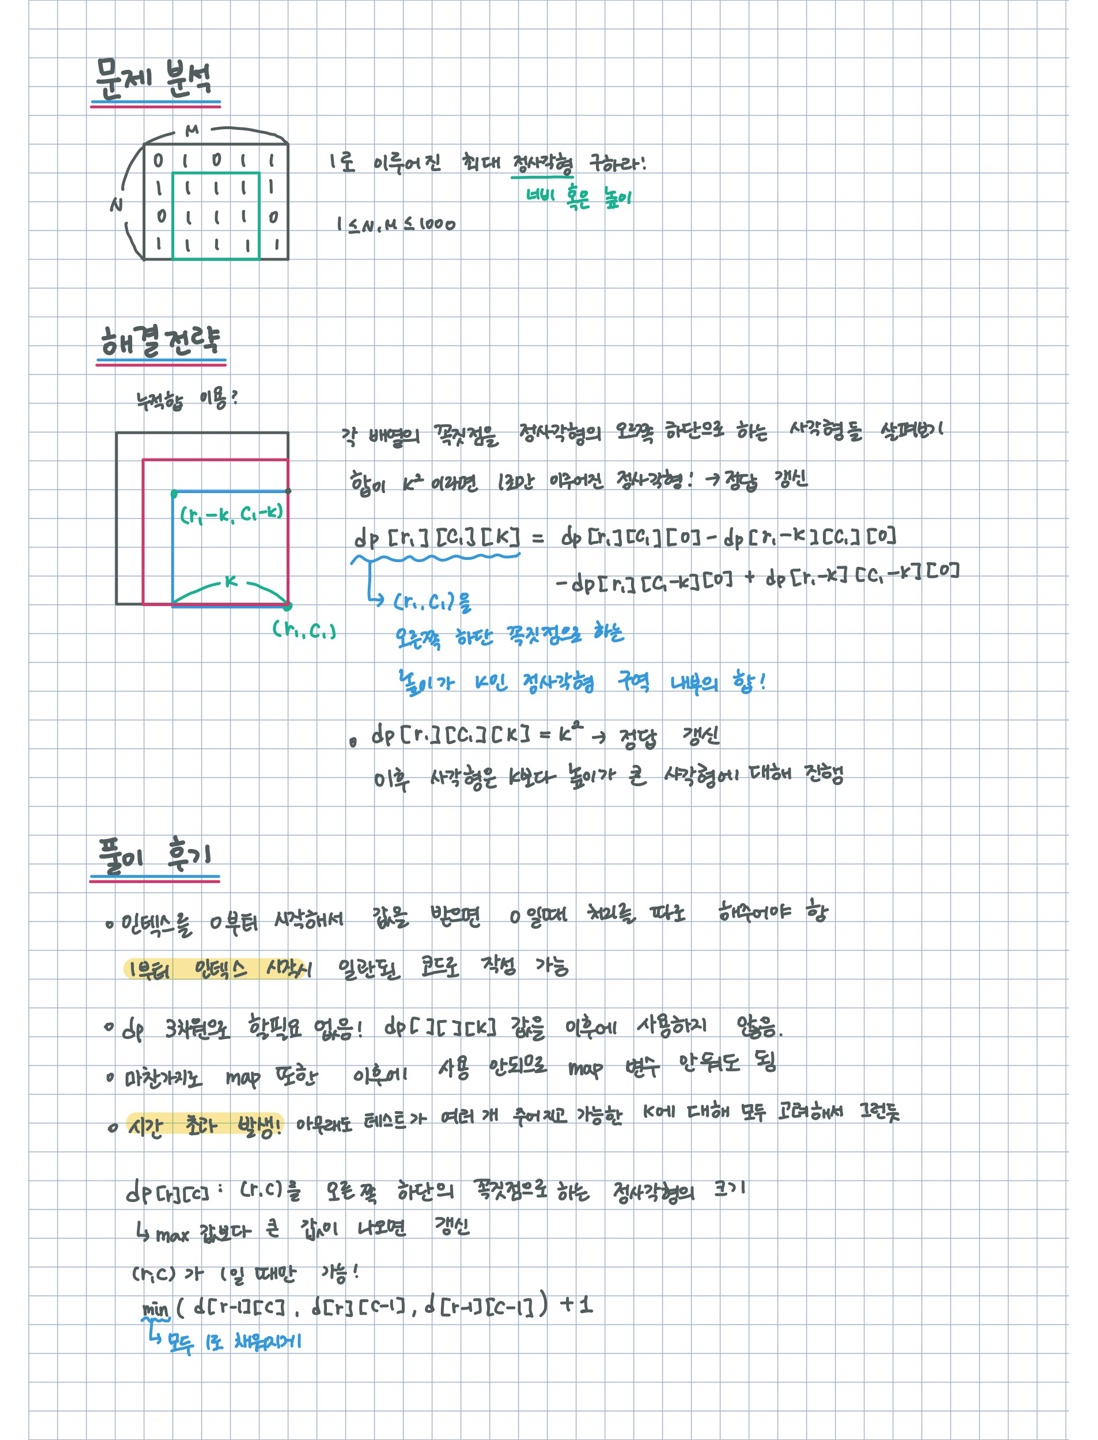 문제 분석
M
N
0 1 0 1 1
1 1 1 1 1
0 1 1 1 0
1 1 1 1 1
1로 이루어진 최대 정사각형 구하라!
너비 혹은 높이
1 ≤ N, M ≤ 1000
해결전략
누적합 이용?
(r₁-k, c₁-k)
k
(r₁, c₁)
각 배열의 꼭짓점을 정사각형의 오른쪽 하단으로 하는 사각형들 살펴보기
합이 k² 이라면 1로만 이루어진 정사각형! → 정답 갱신
dp[r₁][c₁][k] = dp[r₁][c₁][0] - dp[r₁-k][c₁][0]
- dp[r₁][c₁-k][0] + dp[r₁-k][c₁-k][0]
↳ (r₁, c₁)을
오른쪽 하단 꼭짓점으로 하는
높이가 k인 정사각형 구역 내부의 합!
• dp[r₁][c₁][k] = k² → 정답 갱신
이후 사각형은 k보다 높이가 큰 사각형에 대해 진행
풀이 후기
• 인덱스를 0부터 시작해서 값을 받으면 0일때 처리를 따로 해주어야 함
1부터 인덱스 시작시 일관된 코드로 작성 가능
• dp 3차원으로 할필요 없음! dp[][][k] 값을 이후에 사용하지 않음.
• 마찬가지로 map 또한 이후에 사용 안되므로 map 변수 안둬도 됨
• 시간 초과 발생! 아무래도 테스트가 여러 개 주어지고 가능한 k에 대해 모두 고려해서 그런듯
dp[r][c] : (r,c)를 오른쪽 하단의 꼭짓점으로 하는 정사각형의 크기
↳ max 값보다 큰 값이 나오면 갱신
(r,c)가 1일 때만 가능!
min(d[r-1][c], d[r][c-1], d[r-1][c-1]) + 1
↳ 모두 1로 채워지게